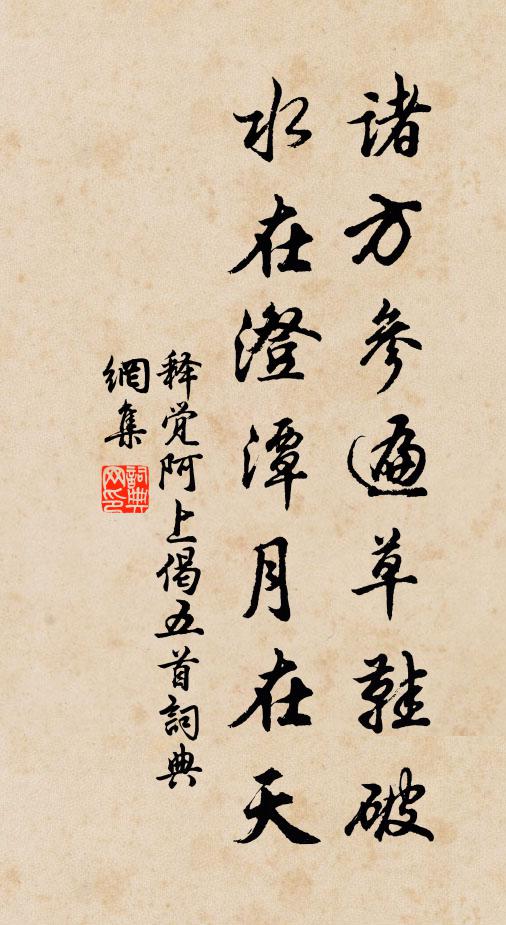 諸方參遍草鞋破
水在澄潭月在天
释觉阿上偈五首詞典
網集
詞典
网印